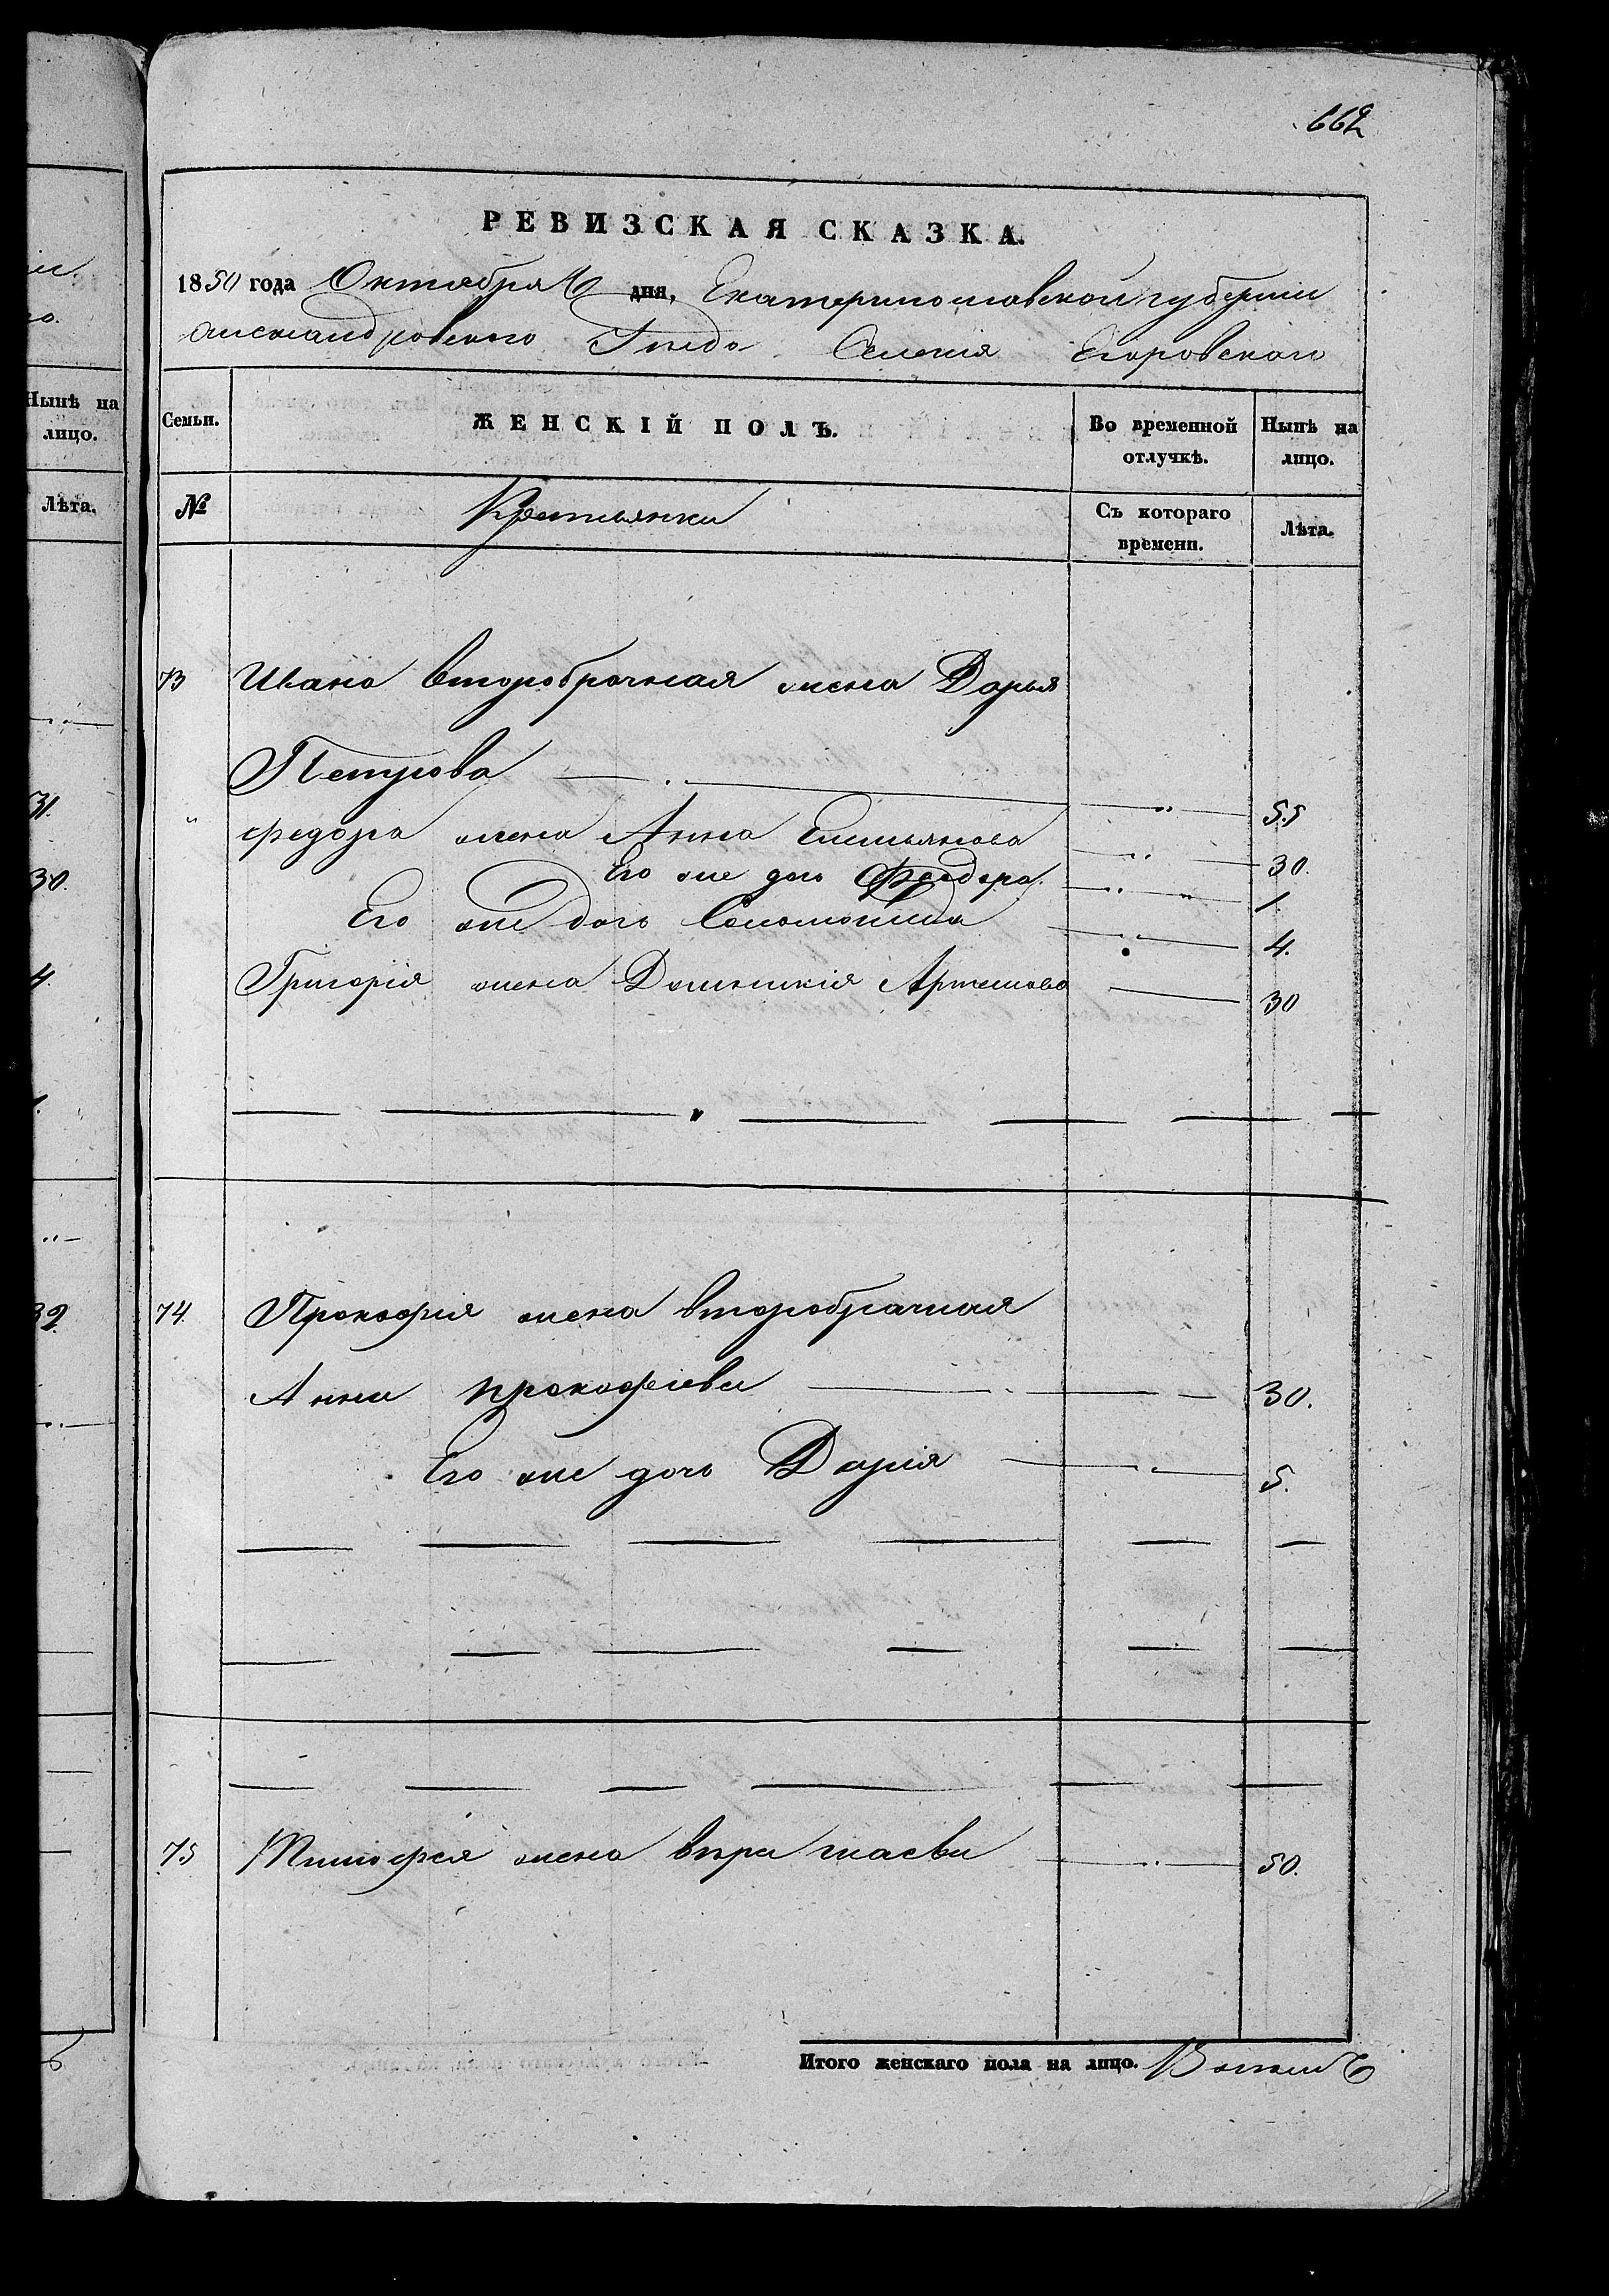 662
РЕВИЗСКАЯ СКАЗКА.
1850 года Октября дня, Екатеринославской губернии
Александровского Уезда Селенія Егоровского
Семьи. ЖЕНСКІЙ ПОЛЪ. Во временной отлучкѣ. Нынѣ на лицо.
№ Крестьянки Съ котораго времени. Лѣта.
73 Ивана второбрачная жена Дарья
Петрова 55
Федора жена Анна Емельянова 30.
Его же дочь Феодора 1
Его же дочь Соломонида 4.
Григорія жена Домникія Артемова 30
74. Прокофія жена второбрачная
Анна Прокофіева 30.
Его же дочь Дарія 5.
75 Тимофея жена Вѣра 50.
Итого женскаго пола на лицо. Восемь
Нынѣ на
лицо.
Лѣта.
31.
30.
4.
32.